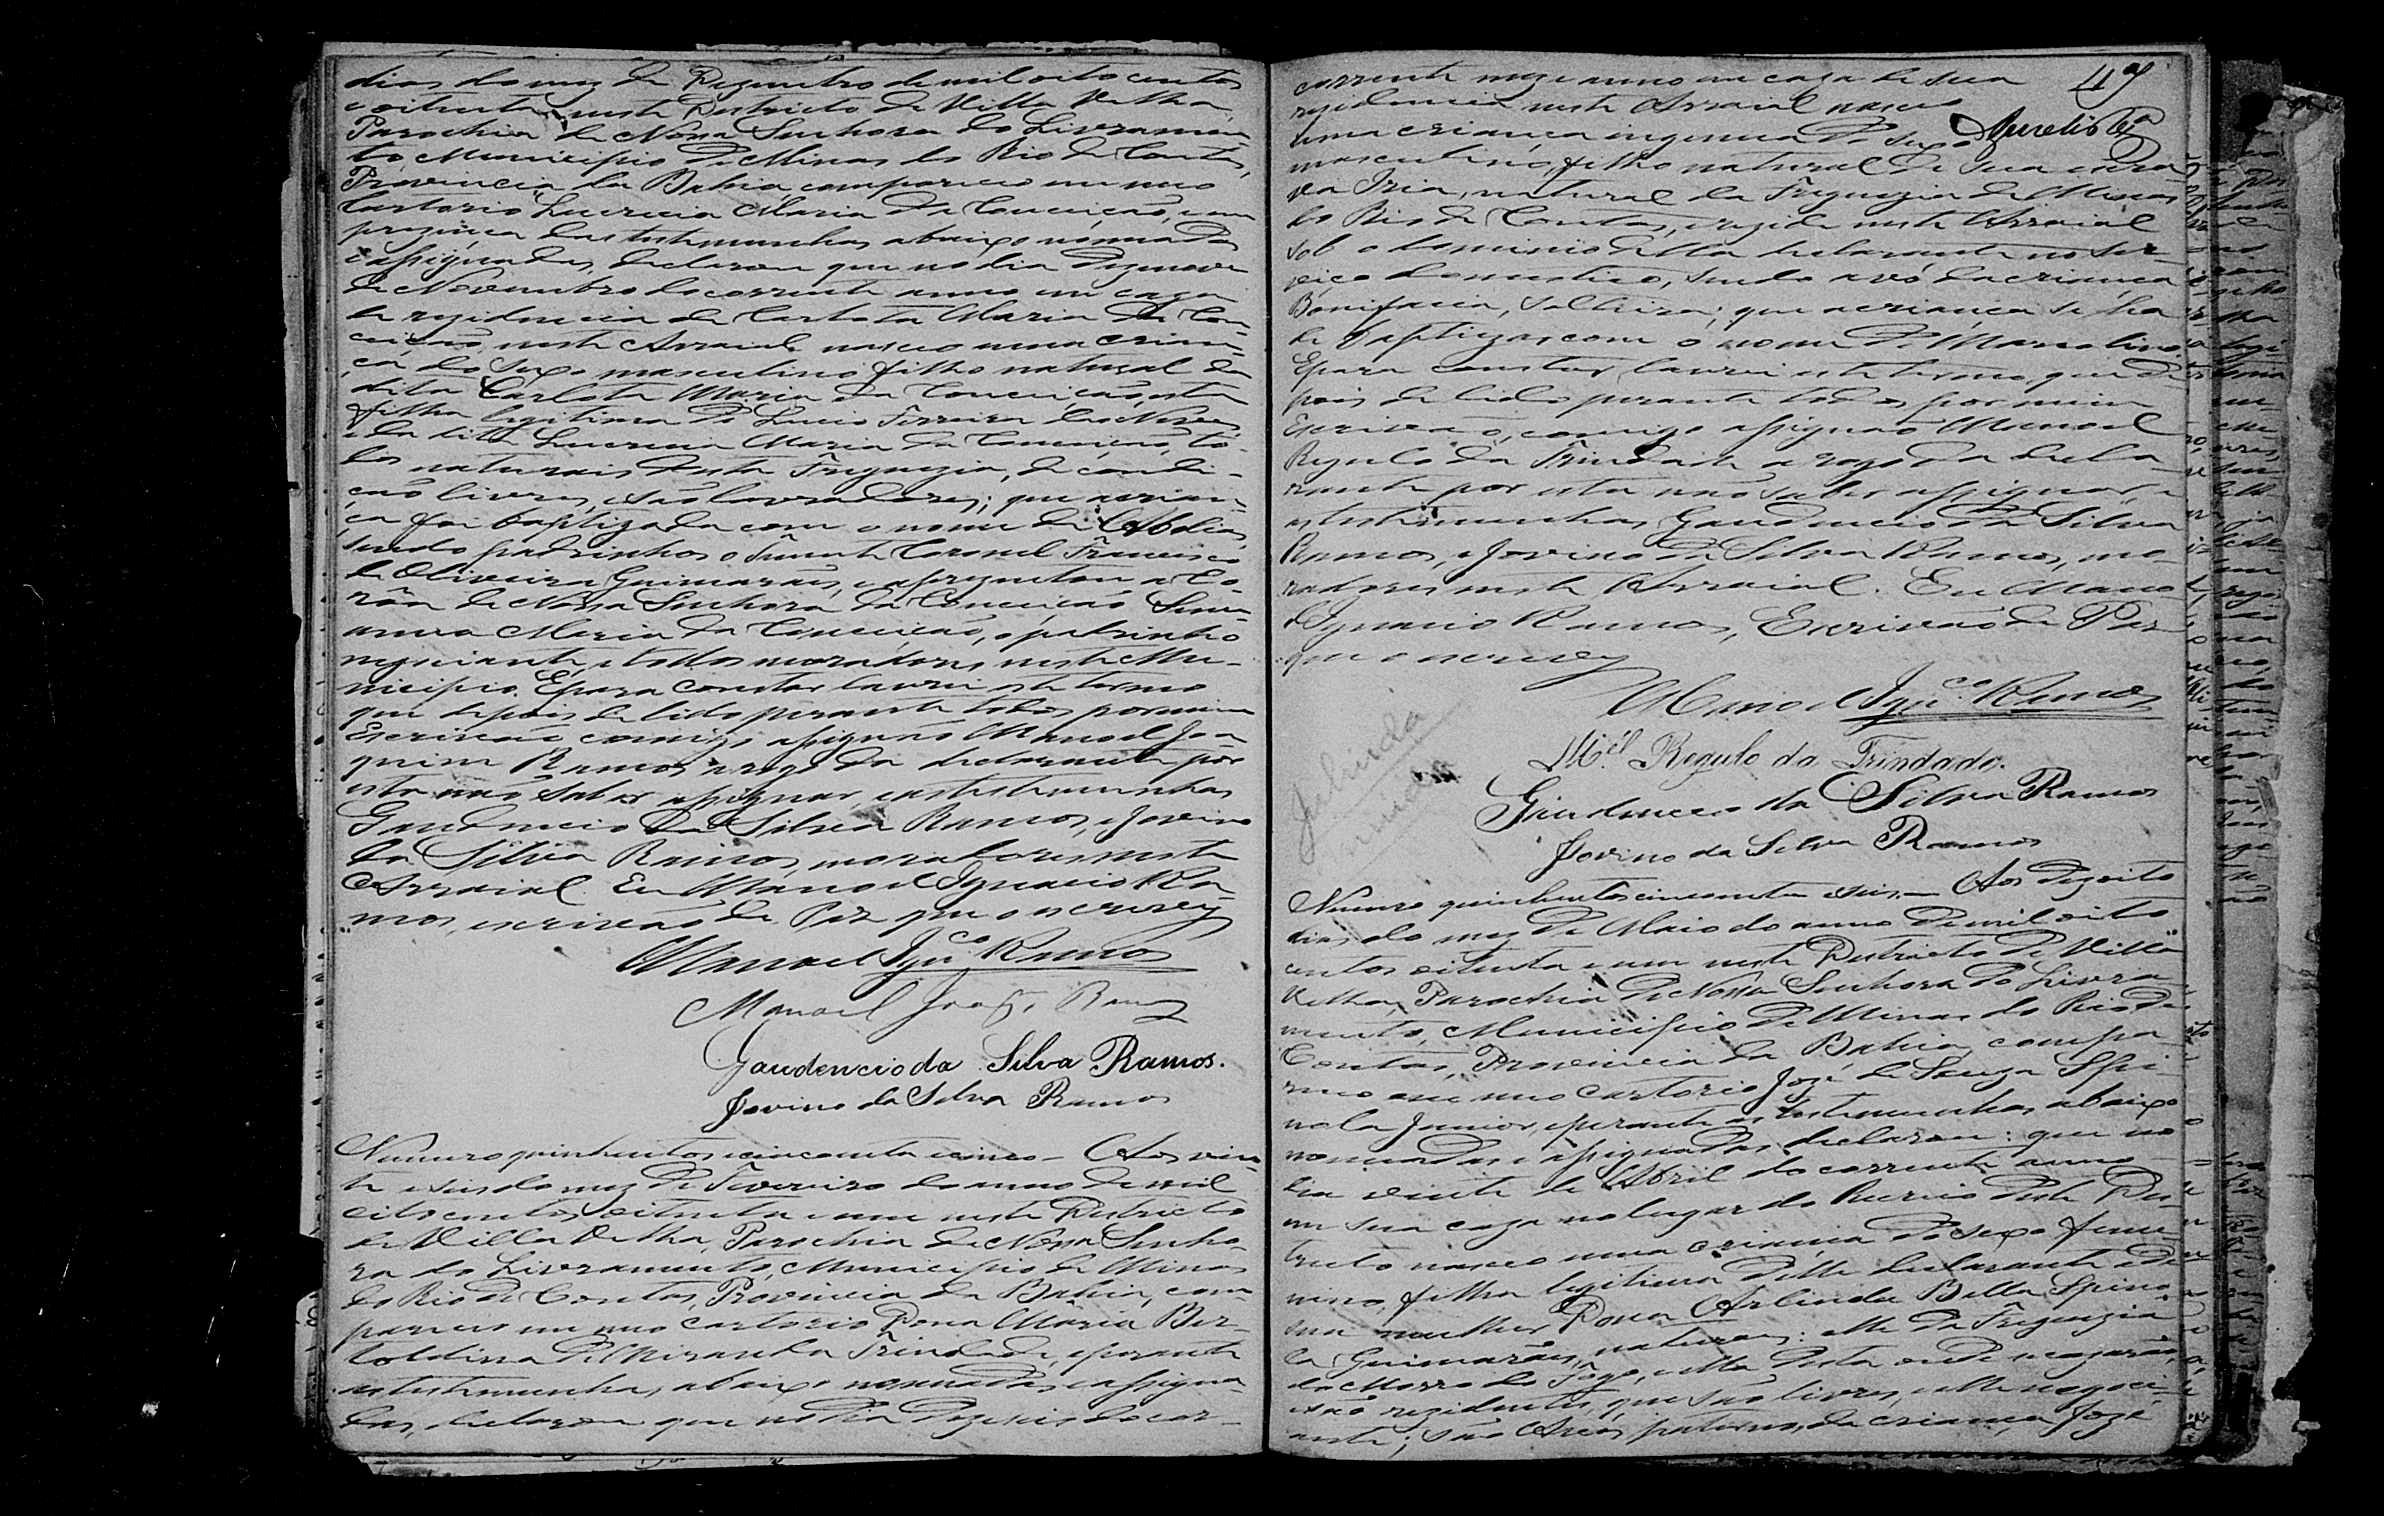 dias do mez de Dezembro de mil oito centos
e oitenta neste Districto de Villa Velha,
Parochia de Nossa Senhora do Livramen-
to Municipio de Minas do Rio de Contas,
Provincia da Bahia, compareceo em meo
Cartorio Lucrecia Maria da Conceição, e em
prezença das testemunhas abaixo nomeadas
e assignadas, declarou que no dia dezenove
de Novembro do corrente anno em caza
de rezidencia de Carlota Maria da Con-
ceição, neste Arraial nasceo uma crian-
ça do sexo masculino filho natural da
dita Carlota Maria da Conceição, esta
filha legitima de Lucio Ferreira das Neves
e da dita Lucrecia Maria da Conceição, to-
dos naturais desta Freguezia, de condi-
ção livres, e são lavradores; que a crian-
ça foi baptizada com o nome de Abdias,
sendo padrinhos o Tenente Coronel Francisco
de Oliveira Guimarães, e aprezentou a Co-
rôa de Nossa Senhora da Conceição
Maria da Conceição, o padrinho
negociante e todos moradores neste Mu-
nicipio. E para constar lavrei este termo
que depois de lido perante todos por mim
Escrivão comigo assignão Manoel Joa-
quim Ramos a rogo da declarante por
esta não saber assignar, e as testemunhas
Gaudencio da Silva Ramos, e Jovino
da Silva Ramos, moradores neste
Arraial. Eu Manoel Ignacio Ra-
mos, escrivão de Paz que o escrevy
Manoel Ignco Ramos
Manoel Joaqm Ramos
Gaudencio da Silva Ramos.
Jovino da Silva Ramos
Numero quinhentos e cincoenta e cinco - Aos vin-
te e seis do mez de Fevereiro do anno de mil
oito centos oitenta e um neste Districto
de Villa Velha, Parochia de Nossa Senho-
ra do Livramento, Municipio de Minas
do Rio de Contas, Provincia da Bahia, com-
pareceo em meo cartorio Dona Maria Ber-
toldina de Miranda Trindade, e perante
as testemunhas abaixo nomeadas e assigna-
das, declarou que no dia dezeseis do cor-
corrente mez e anno em caza de sua
rezidencia neste Arraial nasceo
uma criança ingenua do sexo
masculino, filho natural de sua escra-
va Iria, natural da Freguezia de Minas
do Rio de Contas, rezide neste Arraial
sob o dominio della declarante no ser-
viço domestico, sendo avó da criança
Bonifacia, solteira; que a criança se ha
de baptizar com o nome de Marcolino.
E para constar lavrei este termo que de-
pois de lido perante todos por mim
Escrivão, comigo assignão Manoel
Regulo da Trindade a rogo da decla-
rante por esta não saber assignar, e
as testemunhas Gaudencio da Silva
Ramos, e Jovino da Silva Ramos, mo-
radores neste Arraial. Eu Mano-
el Ignacio Ramos, Escrivão de Paz
que o escrevy
Manoel Ignco Ramos
Mel Regulo da Trindade.
Gaudencio da Silva Ramos
Jovino da Silva Ramos
Numero quinhentos cincoenta e seis - Aos dezoito
dias do mez de Maio do anno de mil oito
centos oitenta e um neste Districto de Villa
Velha, Parochia de Nossa Senhora do Livra-
mento, Municipio de Minas do Rio de
Contas, Provincia da Bahia, compa-
receo em meo cartorio Jozé de Souza Spi-
nola Junior, e perante as testemunhas abaixo
nomeadas e assignadas, declarou: que no
dia vinte de Abril do corrente anno
em sua caza no lugar do Recreio deste Dis-
tricto nasceo uma criança do sexo femi-
nino, filha legitima delle declarante e de
sua mulher Dona Arlinda Bella Spino-
la Guimarães, naturaes: elle da Freguezia
do Morro do Fôgo, e ella desta onde se cazarão,
e são rezidentes, que são livres, e elle negoci-
ante; são Avós paternos da criança, Jozé